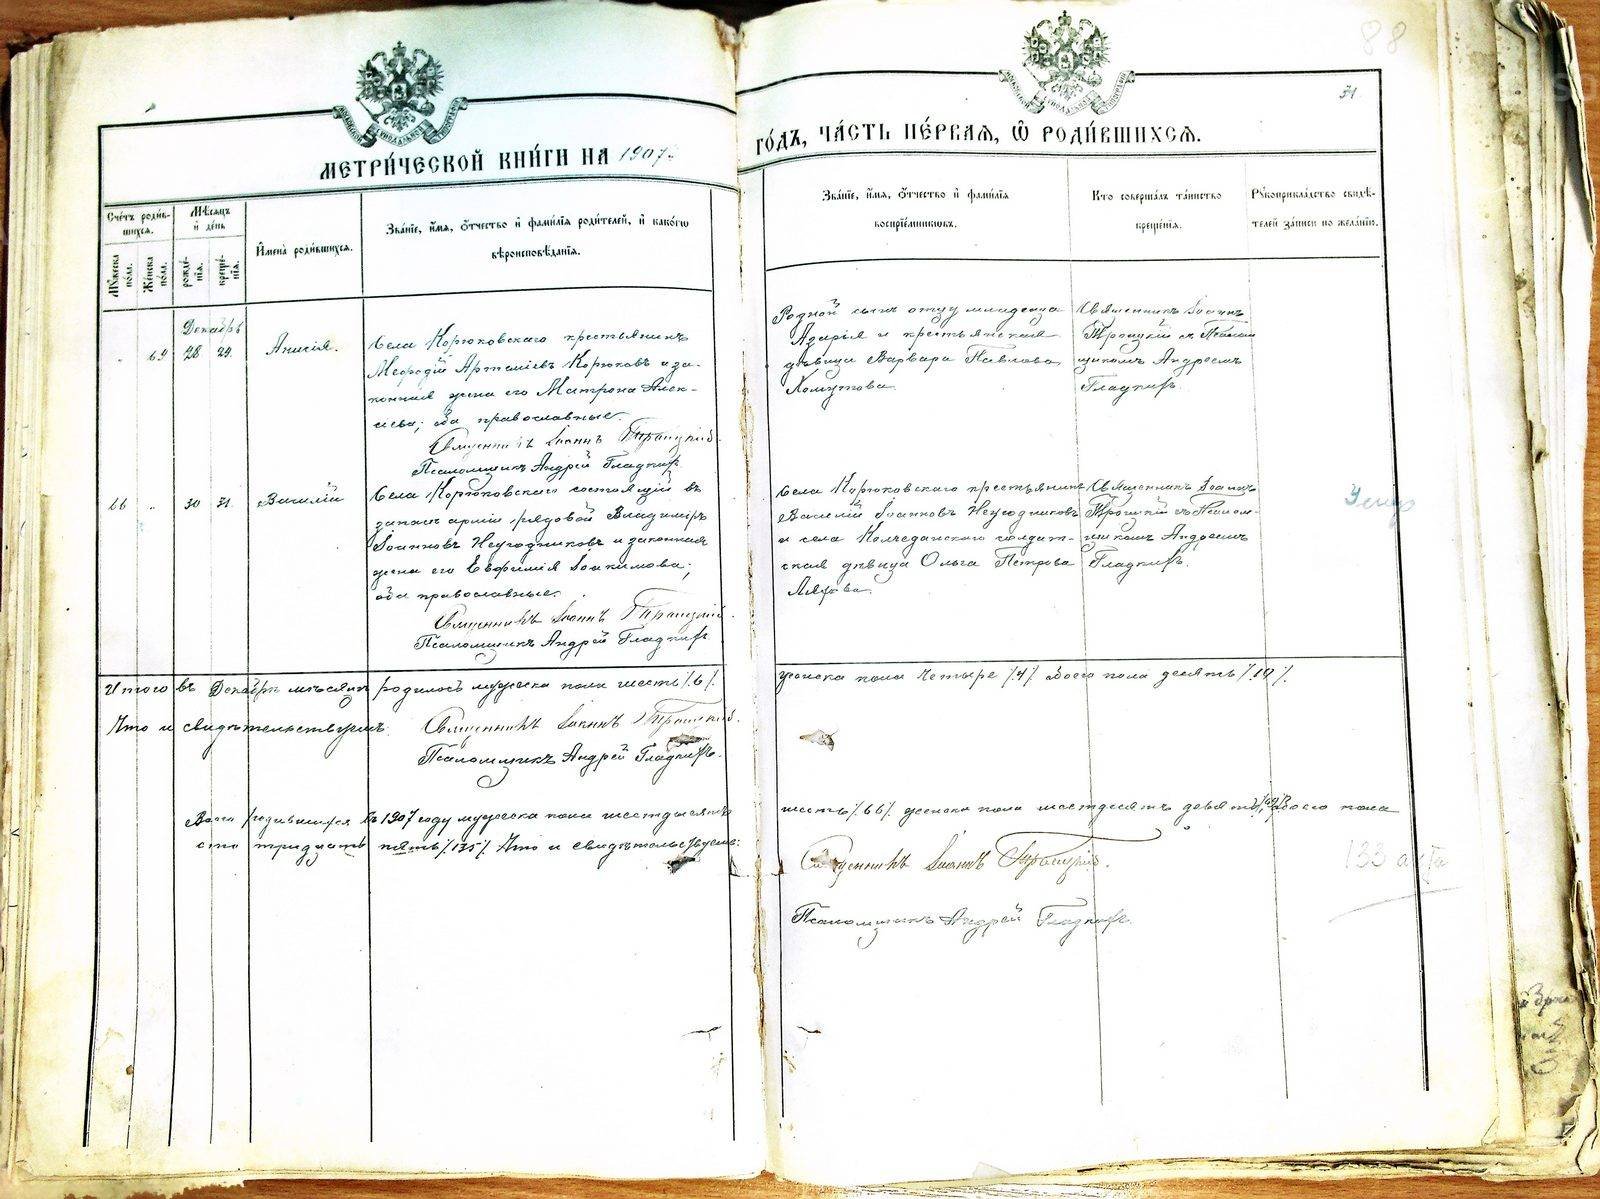 88
31
МЕТРИ́ЧЕСКОЙ КНИ́ГИ НА 1907 ГО́ДЪ, ЧА́СТЬ ПЕ́РВАЯ, Ѿ РОДИ́ВШИХСЯ.
Сче́тъ роди́в-
шихся.
Мꙋ́жеска по́ла.
Же́нска по́ла.
Мѣ́сяцъ
и́ де́нь
рожде́-
нїя.
креще́-
нїя.
И҆мена̀ роди́вшихся.
Зва́нїе, и҆́мя, ѻ҆́тчество и҆ фами́лїя роди́телей, и҆ како́гѡ
вѣроисповѣ́данїя.
Зва́нїе, и҆́мя, ѻ҆́тчество и҆ фами́лїя
воспрїе́мникѡвъ.
Кто̀ соверша́лъ та́инство
креще́нїя.
Рꙋкоприкла́дство свидѣ́-
телей за́писи по жела́нїю.
Декабрь
69 28 29. Анисія.
Села Корюковскаго крестьянинъ
Меѳодій Артеміевъ Корюковъ и за-
конная жена его Матрона Алек-
сѣева; оба православные.
Священникъ Іоаннъ Троицкій.
Псаломщикъ Андрей Гладкихъ
Родной сынъ отцу младенца
Азарія и крестьянская
дѣвица Варвара Павлова
Хомутова.
Священникъ Іоаннъ
Троицкій съ Псалом
щикомъ Андреемъ
Гладкихъ.
66 „ 30 31. Василій
Села Корюковскаго состоящій въ
запасѣ арміи рядовой Владиміръ
Іоанновъ Неугодниковъ и законная
жена его Евфимія Іоакимова;
оба православные.
Священникъ Іоаннъ Троицкій.
Псаломщикъ Андрей Гладкихъ
Села Корюковскаго крестьянинъ
Василій Іоанновъ Неугодниковъ
и села Колчеданскаго солдат-
ская дѣвица Ольга Петрова
Ляхова.
Священникъ Іоаннъ
Троицкій съ Псалом-
щикомъ Андреемъ
Гладкихъ.
Умер
Итого въ Декабрѣ мѣсяцѣ родилось мужеска пола шесть /6/. женска пола четыре /4/ обоего пола десять /10/.
Что и свидѣтельствуемъ. Священникъ Іоаннъ Троицкій.
Псаломщикъ Андрей Гладкихъ.
Всего родившихся въ 1907 году мужеска пола шестьдесятъ шесть /66/ женска пола шестдесятъ девять /69/ Обоего пола
сто тридцать пять /135/ Что и свидѣтельствуемъ:
Священникъ Іоаннъ Троицкій.
133 акта
Псаломщикъ Андрей Гладкихъ.